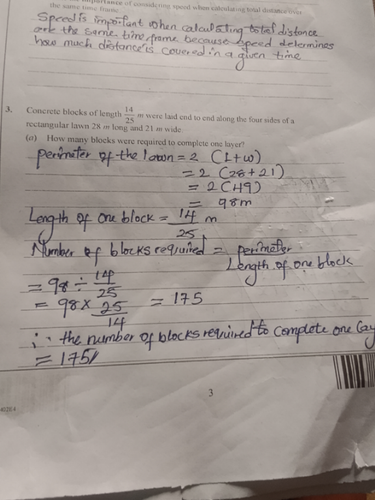 importance of considering speed when calculating total distance over
the same time frame.
Speed is important when calculating total distance
over the same time frame because speed determines
how much distance is covered in a given time
3. Concrete blocks of length 14/25 m were laid end to end along the four sides of a
rectangular lawn 28 m long and 21 m wide.
(a) How many blocks were required to complete one layer?
Perimeter of the lawn = 2 (L+W)
= 2 (28+21)
= 2 (49)
= 98m
Length of one block = 14/25 m
Number of blocks required = perimeter / Length of one block
= 98 ÷ 14/25
= 98 × 25/14 = 175
∴ the number of blocks required to complete one lay
= 175//
3